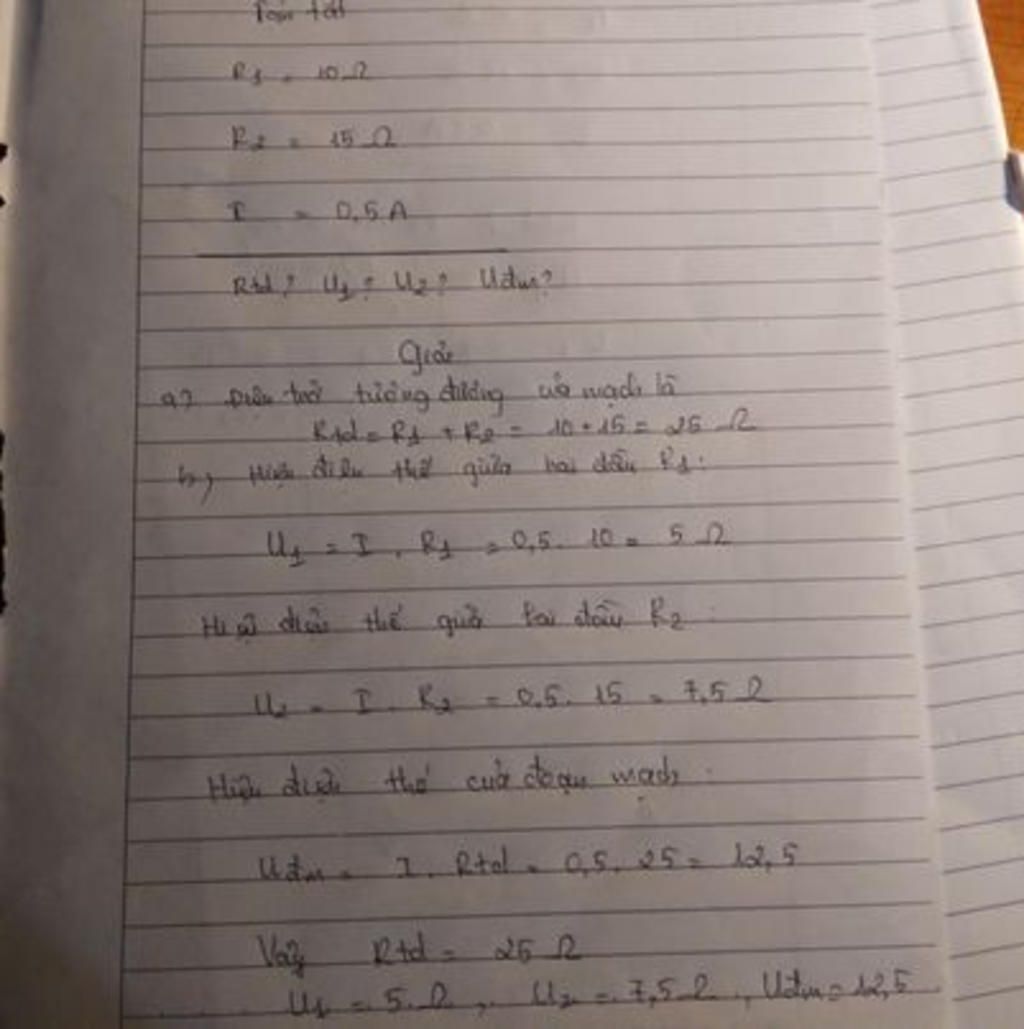 Tóm tắt
R1 = 10 Ω
R2 = 15 Ω
I = 0,5 A
Rtd ? U1 ? U2 ? Uđm?
Giải
a) Điện trở tương đương của mạch là
Rtd = R1 + R2 = 10 + 15 = 25 Ω
b) Hiệu điện thế giữa hai đầu R1:
U1 = I . R1 = 0,5 . 10 = 5 Ω
Hiệu điện thế giữa hai đầu R2 :
U2 = I . R2 = 0,5 . 15 = 7,5 Ω
Hiệu điện thế của đoạn mạch :
Uđm = I . Rtd = 0,5 . 25 = 12,5
Vậy Rtd = 25 Ω
U1 = 5 Ω , U2 = 7,5 Ω , Uđm = 12,5